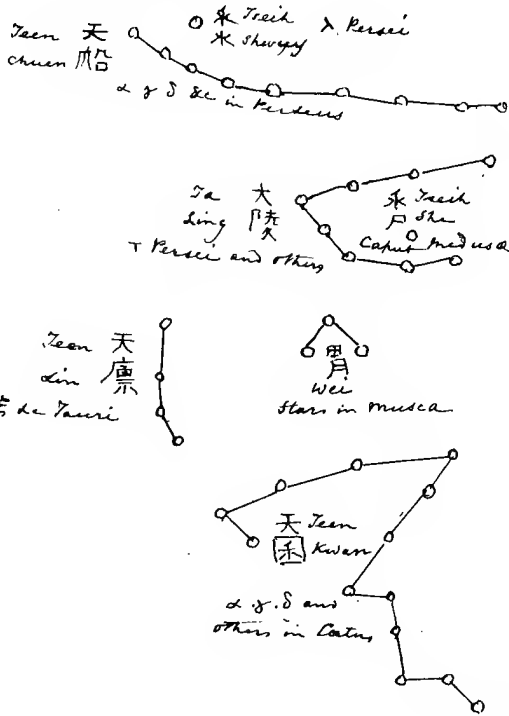 Teen 天
Chuen 船
氺 Tseih
水 Shewy
λ. Persei
α γ δ &c in Perseus
Ta 大
Ling 陵
τ Persei and others
氺 Tseih
尸 She
Caput Medusa
Teen 天
Lin 廩
&c Tauri
胃
Wei
Stars in Musca
天 Teen
囷 Kwan
α. γ. δ and
others in Coetus